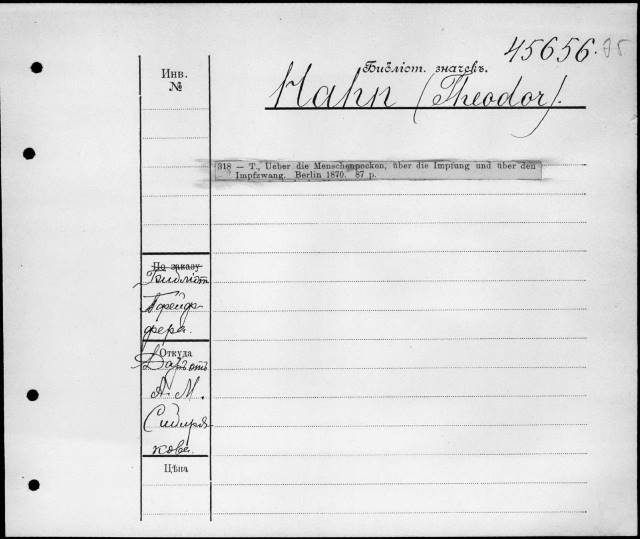 45656.
Библіот. значекъ.
Hahn (Theodor).
Инв.
№
318 — T., Ueber die Menschenpocken, über die Impfung und über den
Impfzwang. Berlin 1870. 87 p.
По заказу
Библіот.
фера.
Откуда
Даръ отъ
А. М.
Сибиря-
кова.
Цѣна